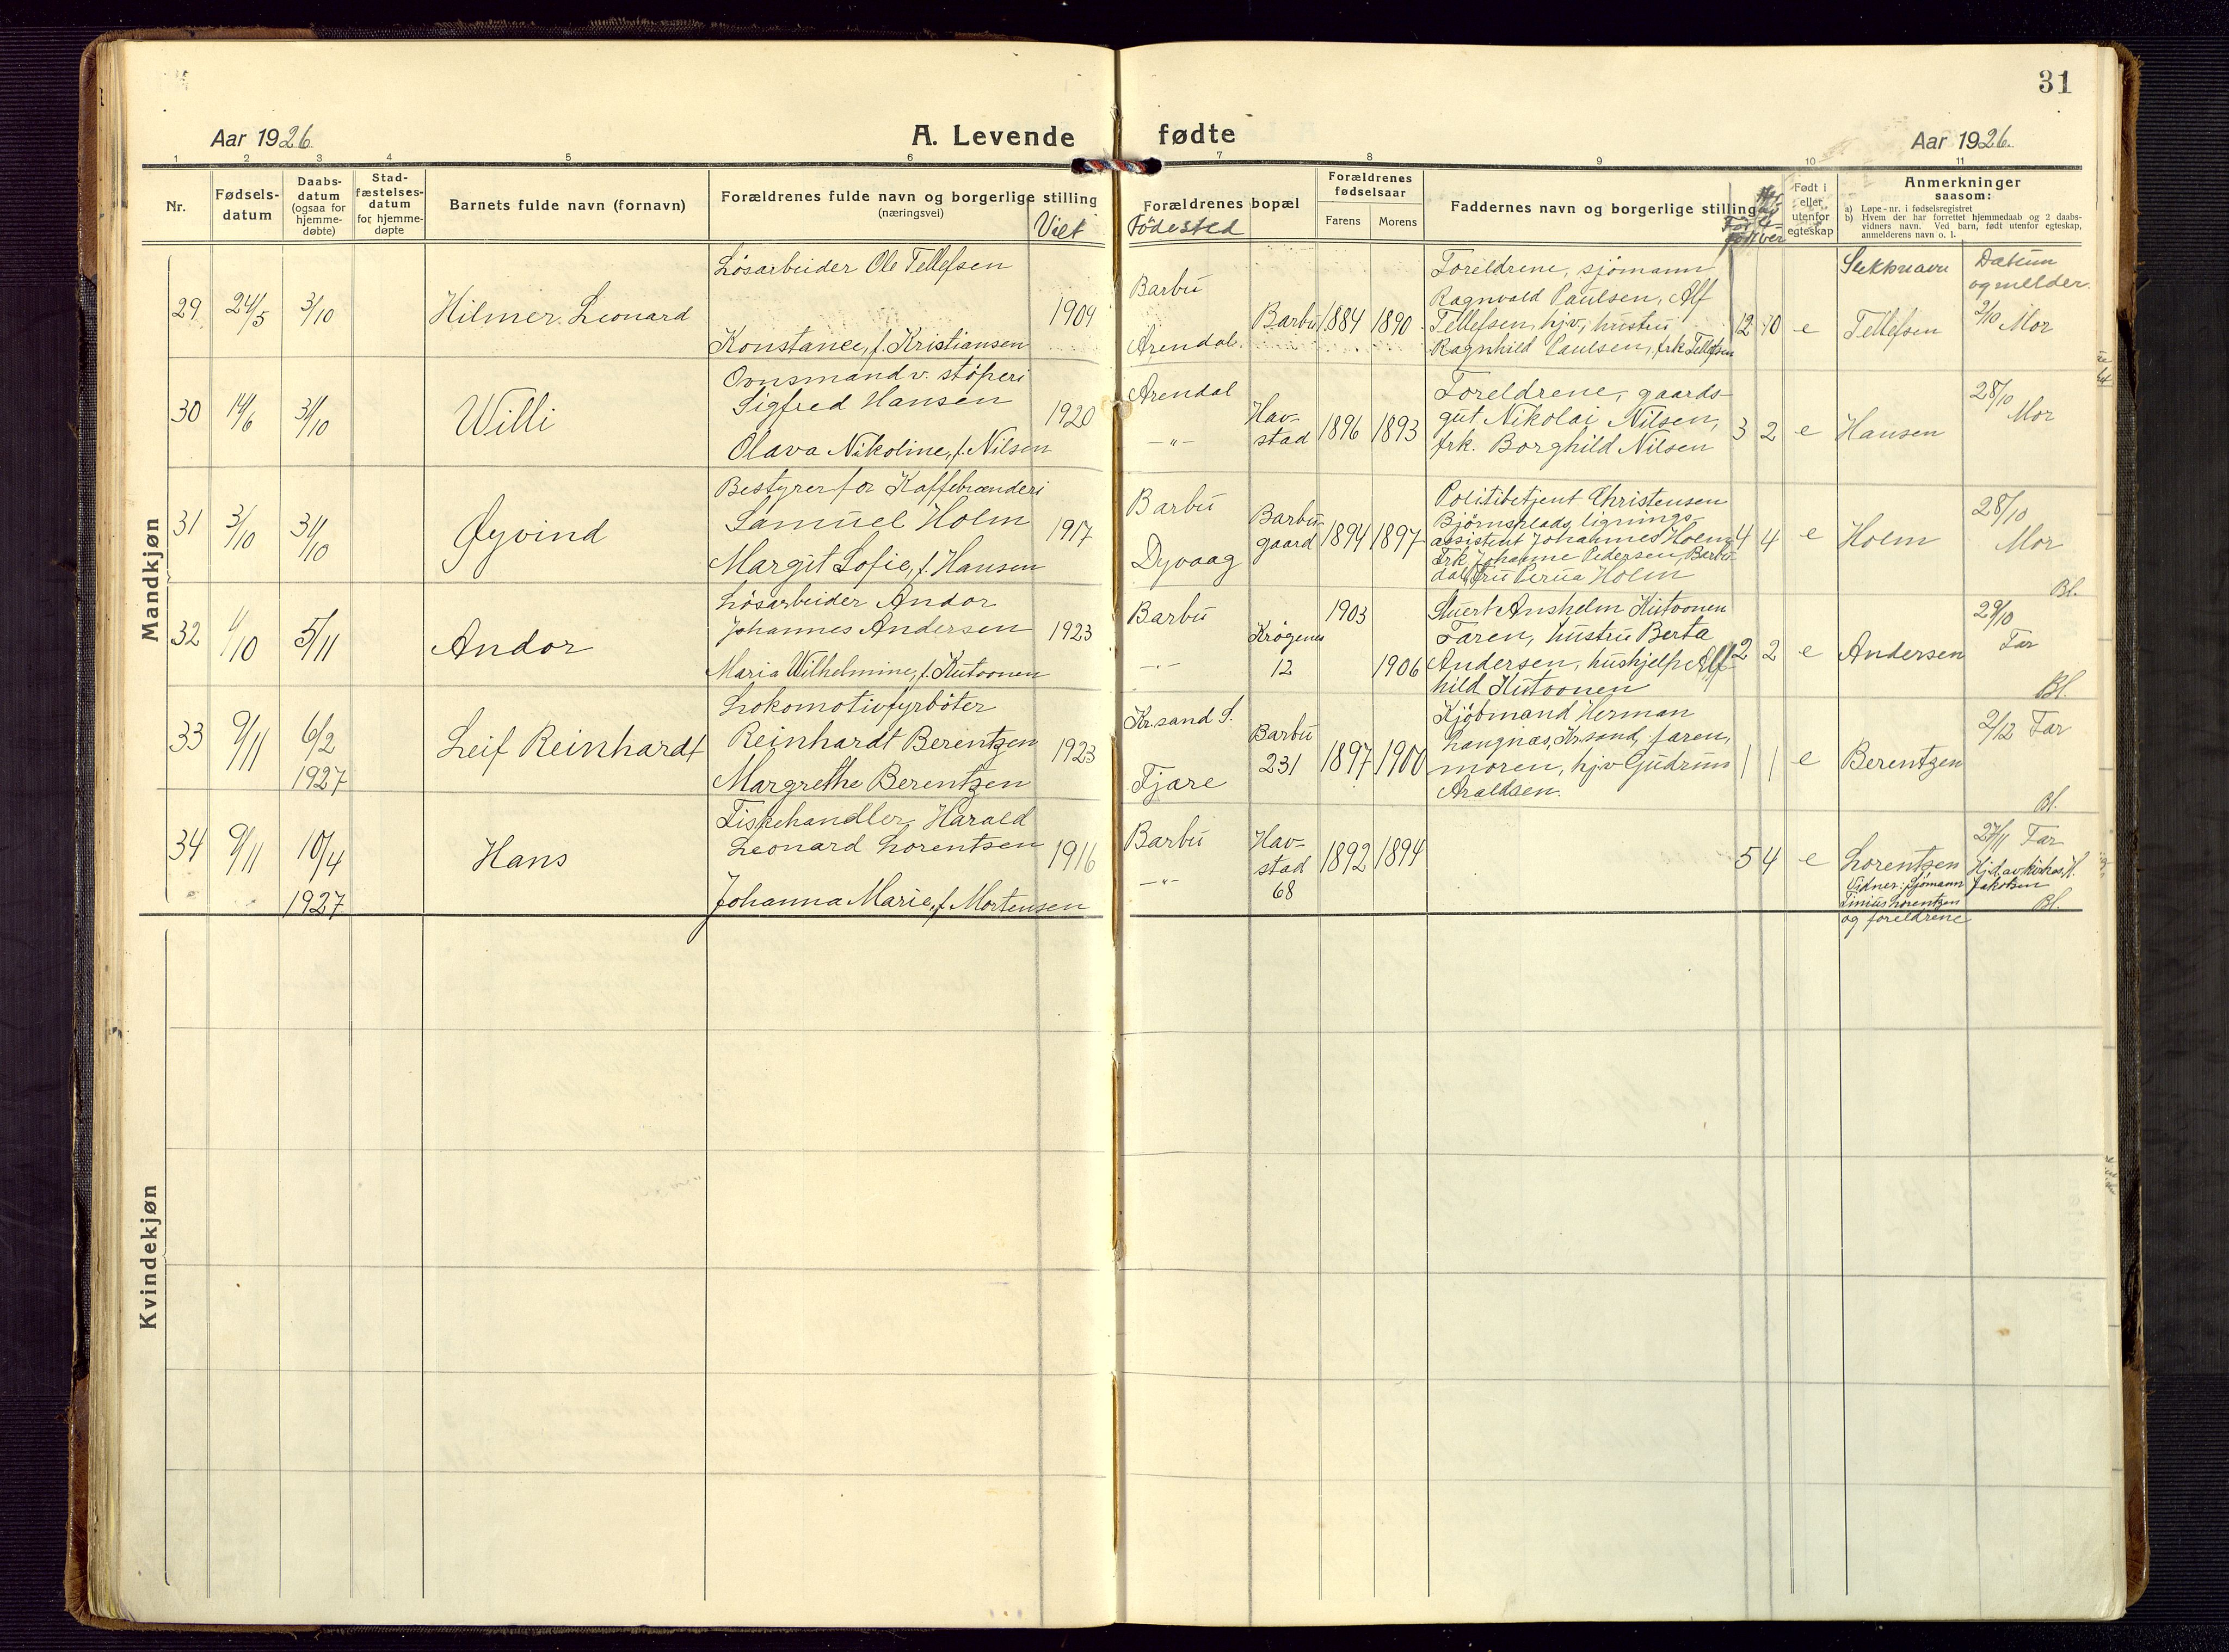 31
Aar 1926
A. Levende
fødte
Aar 1926.
1 2 3 4 5 6 7 8 9 10 11
Nr.
Fødsels-
datum
Daabs-
datum
(ogsaa for
hjemme-
døbte)
Stad-
fæstelses-
datum
for hjemme-
døpte
Barnets fulde navn (fornavn)
Forældrenes fulde navn og borgerlige stilling
(næringsvei)
Viet
Forældrenes bopæl
Födested
Forældrenes
fødselsaar
Farens
Morens
Faddernes navn og borgerlige stilling
Født i
eller
utenfor
egteskap
Anmerkninger
saasom:
a) Løpe-nr. i fødselsregistret
b) Hvem der har forrettet hjemmedaab og 2 daabs-
vidners navn. Ved barn, født utenfor egteskap,
anmelderens navn o. l.
Mandkjøn
Slektsnavn
Datum
og melder.
29 24/5 3/10
Hilmer Leonard
Lösarbeider Ole Tellefsen
Konstance, f. Kristiansen
1909
Barbu
Arendal.
Barbu
1884 1890
Foreldrene, sjömann
Ragnvald Paulsen, Alf
Tellefsen, hjv., hustru
Ragnhild Paulsen, frk Tellefsen
12 10 e
Tellefsen
2/10 Mor
30 14/6 31/10
Willi
Ovnsmand v. stöperi
Sigfred Hansen
Olava Nikoline, f. Nilsen
1920
Arendal
-"-
Hav-
stad
1896 1893
Foreldrene, gaards-
gut Nikolai Nilsen,
frk. Borghild Nilsen
3 2 e
Hansen
28/10
Mor
31 3/10 31/10
Øyvind
Bestyrer for Kaffebrænderi
Samuel Holm
Margit Sofie, f. Hansen
1917
Barbu
Dyvaag
Barbu-
gaard
1894 1897
Politibetjent Christensen
Bjørnsplads, lignings-
assistent Johannes Holm
Frk Johanne Pedersen, Barbu-
dal, Fru Perua Holm
4 4 e
Holm
28/10
Mor
Bl.
32 1/10 5/11
Andor
Lösarbeider Andor
Johannes Andersen
Maria Wilhelmine, f. Kutoonen
1923
Barbu
-"-
Krögenes
12
1903
1906
Stuert Anshelm Kutoonen
Faren, hustru Berta
Andersen, hushjelp Alf-
hild Kutoonen
2 2 e
Andersen
29/10
Far
Bl.
33 9/11 6/2
1927
Leif Reinhardt
Lokomotivfyrböter
Reinhardt Berentzen
Margrethe Berentzen
1923
Kr.sand S.
Fjære
Barbu
231
1897 1900
Kjöbmand Herman
Langnas, Kr.sand, faren,
moren, hjv Gudrun
Araldsen.
1 1 e
Berentzen
2/12 Far
Bl.
34 9/11 10/4
1927
Hans
Fiskehandler Harald
Leonard Lorentsen
Johanna Marie, f Mortensen
1916
Barbu
-"-
Hav-
stad
68
1892 1894
5 4 e
Lorentzen
27/11 Far
Hj.d. av kirkes. H.
Jakobsen
Vidner: Sjömann
Tinius Lorentzen
og foreldrene
Bl.
Kvindekjøn